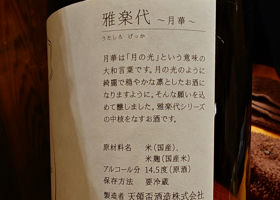 雅楽代 ~月華~
うたしろ げっか
月華は「月の光」という意味の
大和言葉です。月の光のように
綺麗で穏やかな凛としたお酒に
なりますように。そんな願いを込
めて醸しました。雅楽代シリーズ
の中核をなすお酒です。
原材料名 米(国産)、
米麹(国産米)
アルコール分 14.5度(原酒)
保存方法 要冷蔵
製造者 天領盃酒造株式会社